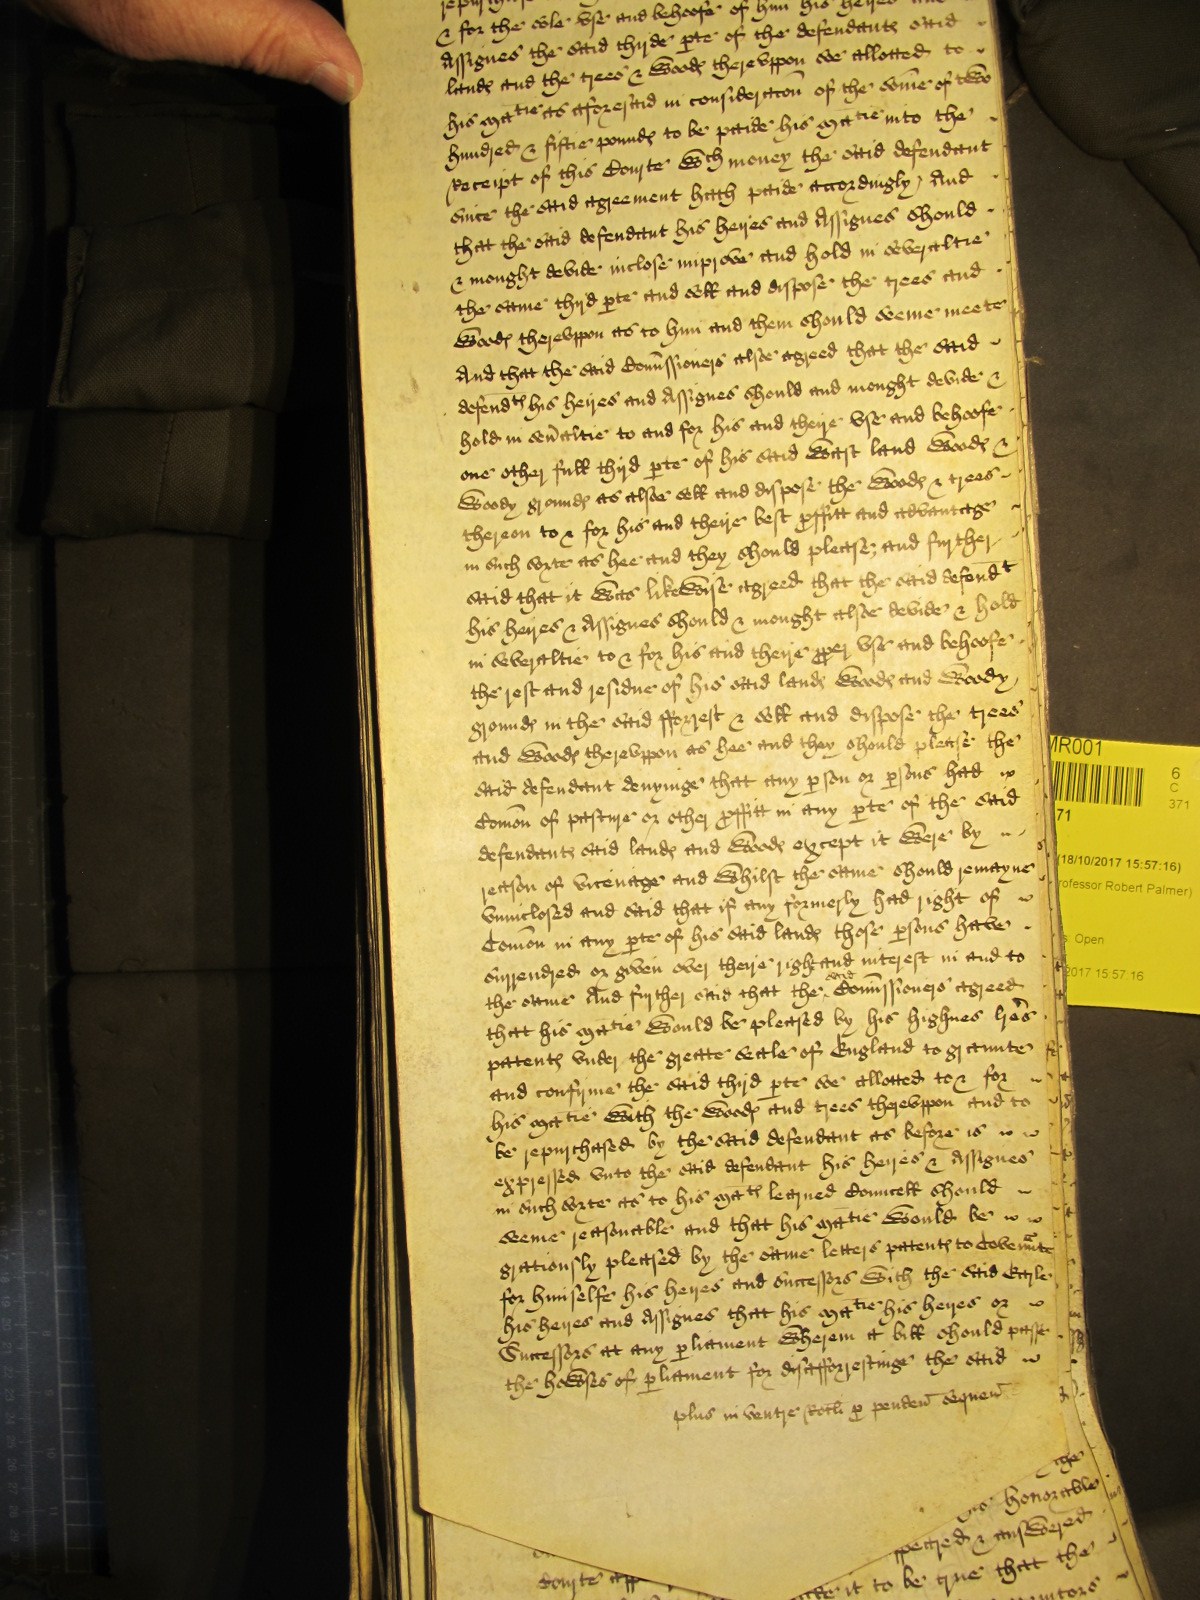 & for the sole use and behoofe of him his heires and
Assignes the said third pte of the defendants said
lands and the trees & Woods thereuppon soe allotted to
his Matie as aforesaid in consideracon of the some of two
hundred & fiftie pounds to be paide his Matie into the
Receipt of this Courte Wch money the said defendant
since the said agreement hath paide accordingly, And
that the said defendant his heires and Assignes should
& mought devide inclose improve and hold in severaltie
the same third pte and sell and dispose the trees and
Woods thereuppon as to him and them should seeme meete
And that the said Comissioners alsoe agreed that the said
defendt his heires and Assignes should and mought devide &
hold in sevraltie to and for his and theire use and behoofe
one other full third pte of his said Wast land Woods &
Woody grounds as alsoe sell and dispose the Woods & trees
thereon to & for his and theire best proffitt and advantage
in such sorte as hee and they should please; and further
said that it Was likeWise agreed that the said defendt
his heires & Assignes should & mought alsoe devide & hold
in severaltie to & for his and theire pper use and behoofe
the rest and residue of his said lands Woods and Woody
grounds in the said fforrest & sell and dispose the trees
and Woods thereuppon as hee and they should please the
said defendant denyinge that any pson or psons had
Comon of pasture or other proffitt in any pte of the said
defendants said lands and Woods except it Were by
reason of vicenage and Whilst the same should remayne
uninclosed and said that if any formerly had right of
Comon in any pte of his said lands those psons have
surrendred or given over theire right and interest in and to
the same And further said that the said Comissioners agreed
that his Matie Would be pleased by his highnes lres
patents under the greate seale of England to graunte
and confirme the said third pte soe allotted to & for
his Matie With the Woods and trees thereuppon and to
be repurchased by the said defendant as before is
expressed unto the said defendant his heires & Assignes
in such sorte as to his Mats learned Councell should
seeme reasonable and that his Matie Would be
gratiously pleased by the same letters patents to Covenante
for himselfe his heires and successors With the said Earle
his heires and Assignes that his Matie his heires or
Successors at any pliament Wherein a bill should passe
the howses of pliament for disafforrestinge the said
plus in ventre Rotli p penden sequen
age
honorable
& answered
Courte
it to be true that the
MR001
6
C
371
71
(18/10/2017 15:57:16)
rofessor Robert Palmer)
s: Open
2017 15 57 16